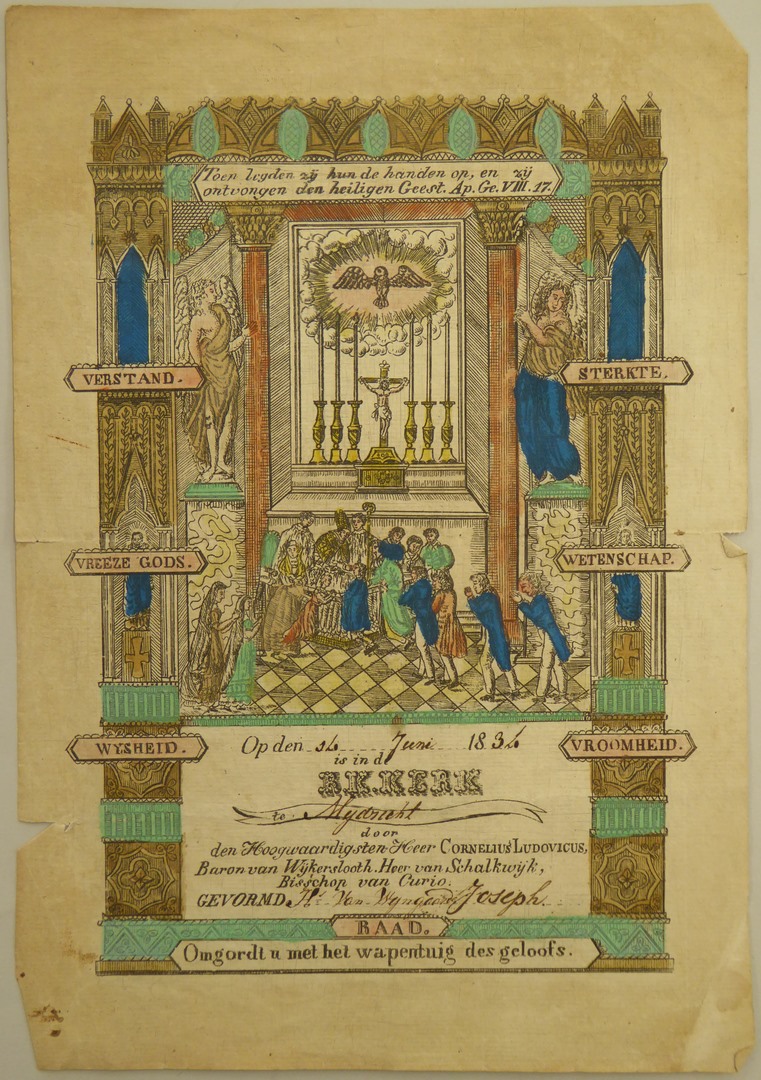 Toen legden zij hun de handen op, en zij
ontvongen den heiligen Geest. Ap. Ge. VIII. 17.
VERSTAND.
STERKTE.
VREEZE GODS.
WETENSCHAP.
WYSHEID.
VROOMHEID.
Op den 14 Juni 1834
is in d
R.K. KERK
te Mijdrecht
door
den Hoogwaardigsten Heer CORNELIUS LUDOVICUS,
Baron van Wijkerslooth. Heer van Schalkwijk,
Bisschop van Curio.
GEVORMD, Van Joseph.
RAAD.
Omgordt u met het wapentuig des geloofs.